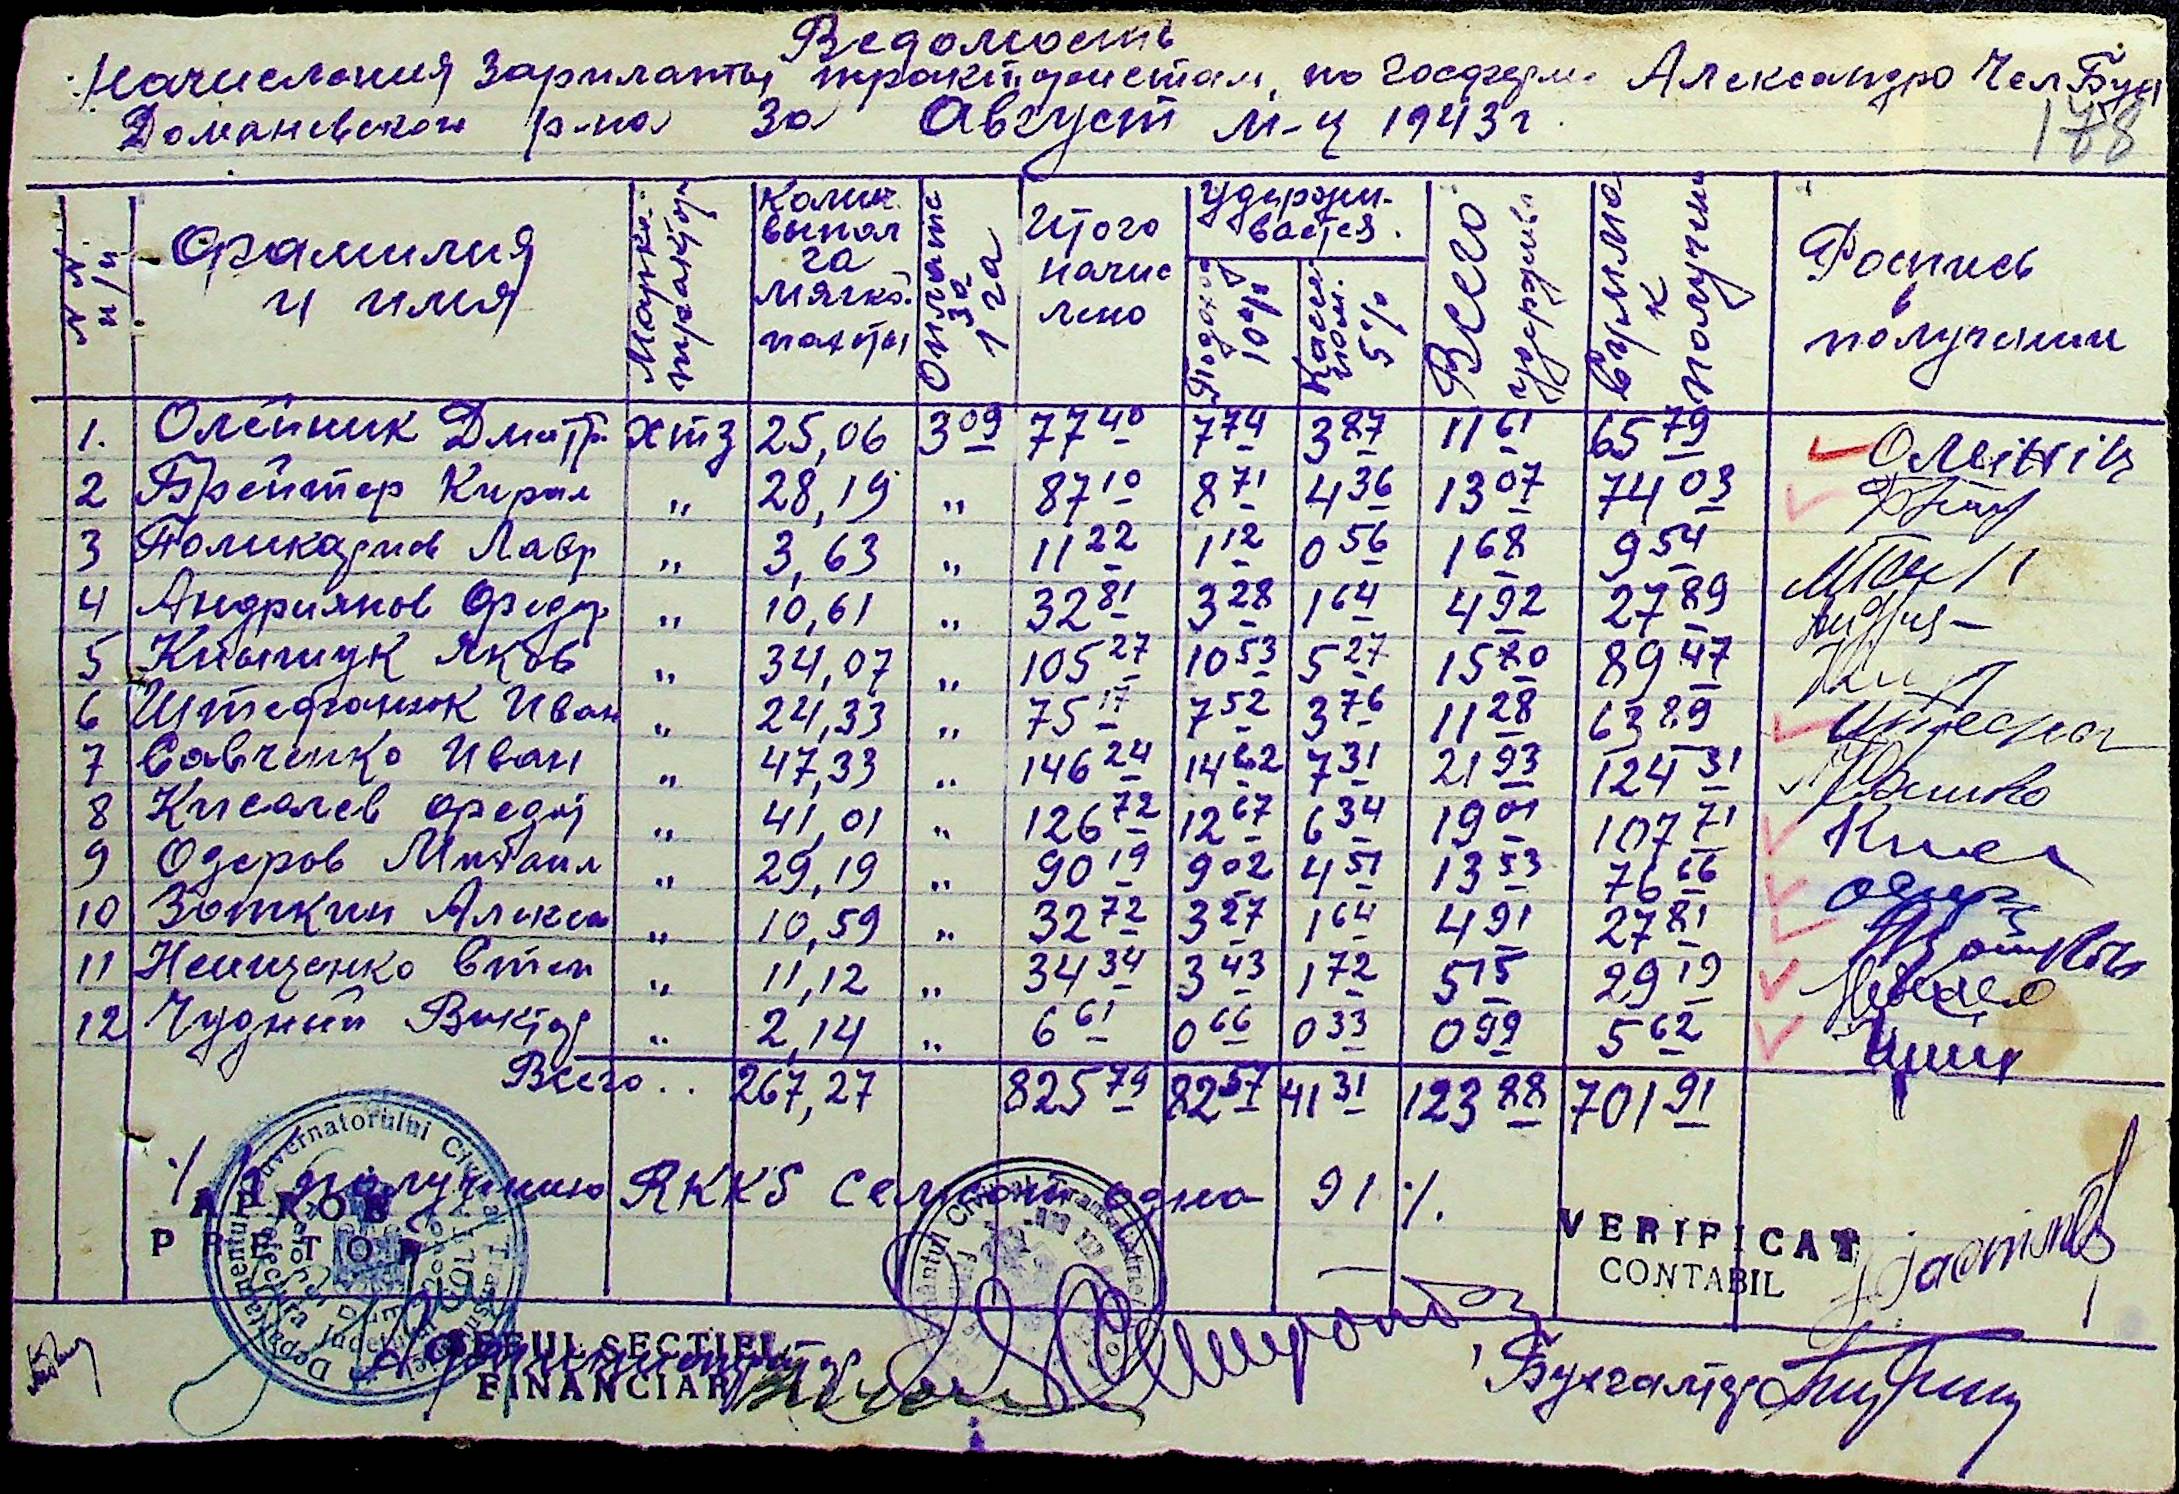 Ведомость
Начисления Зарплаты трактористам, по Госферме Александро Чел Буд
Доманевского р-на За Август м-ц 1943 г.
178
№ № п/п Фамилия и имя Марка трактор Колич. выпол га мягкой. пахоты Оплата за 1 га Итого начис лено Удержи- вается. Подоход 10% Касса 5% Всего удержив Сумма к получени Роспись в получении
1. Олейник Дмитр. ХТЗ 25,06 3 09 77 40 7 74 3 87 11 61 65 79 Oleinik
2 Брейтер Кирил „ 28,19 „ 87 10 8 71 4 36 13 07 74 03
3 Поликарпов Лавр „ 3,63 „ 11 22 1 12 0 56 1 68 9 54
4 Андриянов Федор „ 10,61 „ 32 81 3 28 1 64 4 92 27 89
5 Яков „ 34,07 „ 105 27 10 53 5 27 15 80 89 47
6 Штефанюк Иван „ 24,33 „ 75 17 7 52 3 76 11 28 63 89 Штефан
7 Савченко Иван „ 47,33 „ 146 24 14 62 7 31 21 93 124 31
8 Киселев Федор „ 41,01 „ 126 72 12 67 6 34 19 01 107 71 Кисел
9 Одеров Михаил „ 29,19 „ 90 19 9 02 4 51 13 53 76 66 Одер
10 Зоткин Алексан „ 10,59 „ 32 72 3 27 1 64 4 91 27 81 Зоткин
11 Немщенко Степ „ 11,12 „ 34 34 3 43 1 72 5 15 29 19
12 Чудный Виктор „ 2,14 „ 6 61 0 66 0 33 0 99 5 62
Всего.. 267,27 825 79 82 57 41 31 123 88 701 91
·/ К получению RKKS Семсот одна 91 /.
APROB
PRETOR
VERIFICAT
CONTABIL
ȘEFUL SECTIEI
FINANCIAR
Бухгалтер